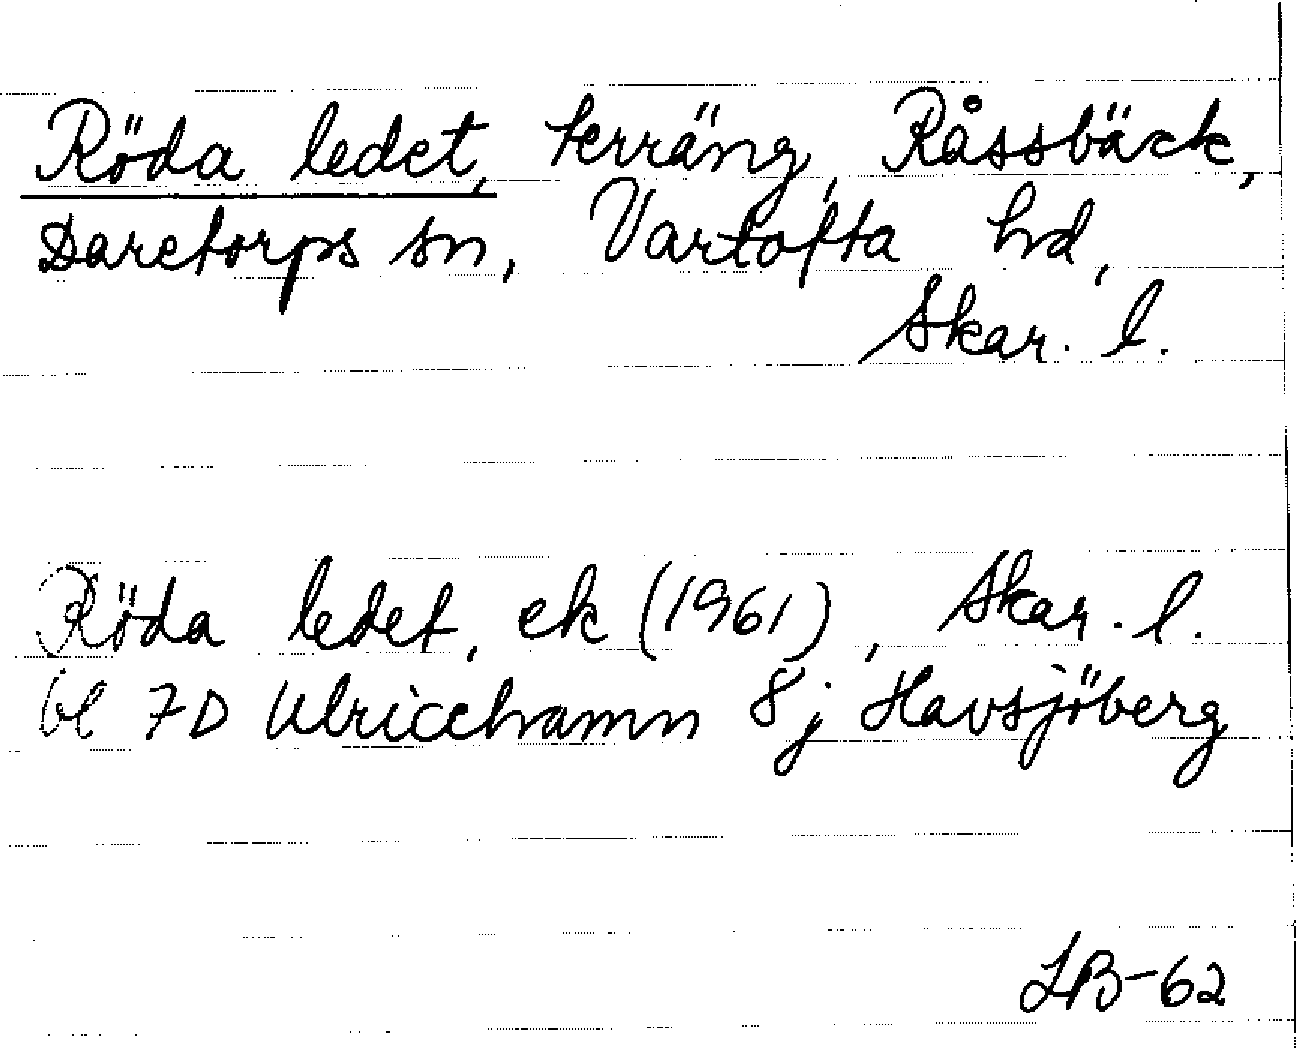 Röda ledet, terräng, Råssbäck,
Daretorps sn, Vartofta hd,
Skar. l.
Röda ledet, ek (1961), Skar. l.
bl 7D Ulricehamn 8j Havsjöberg
LB-62